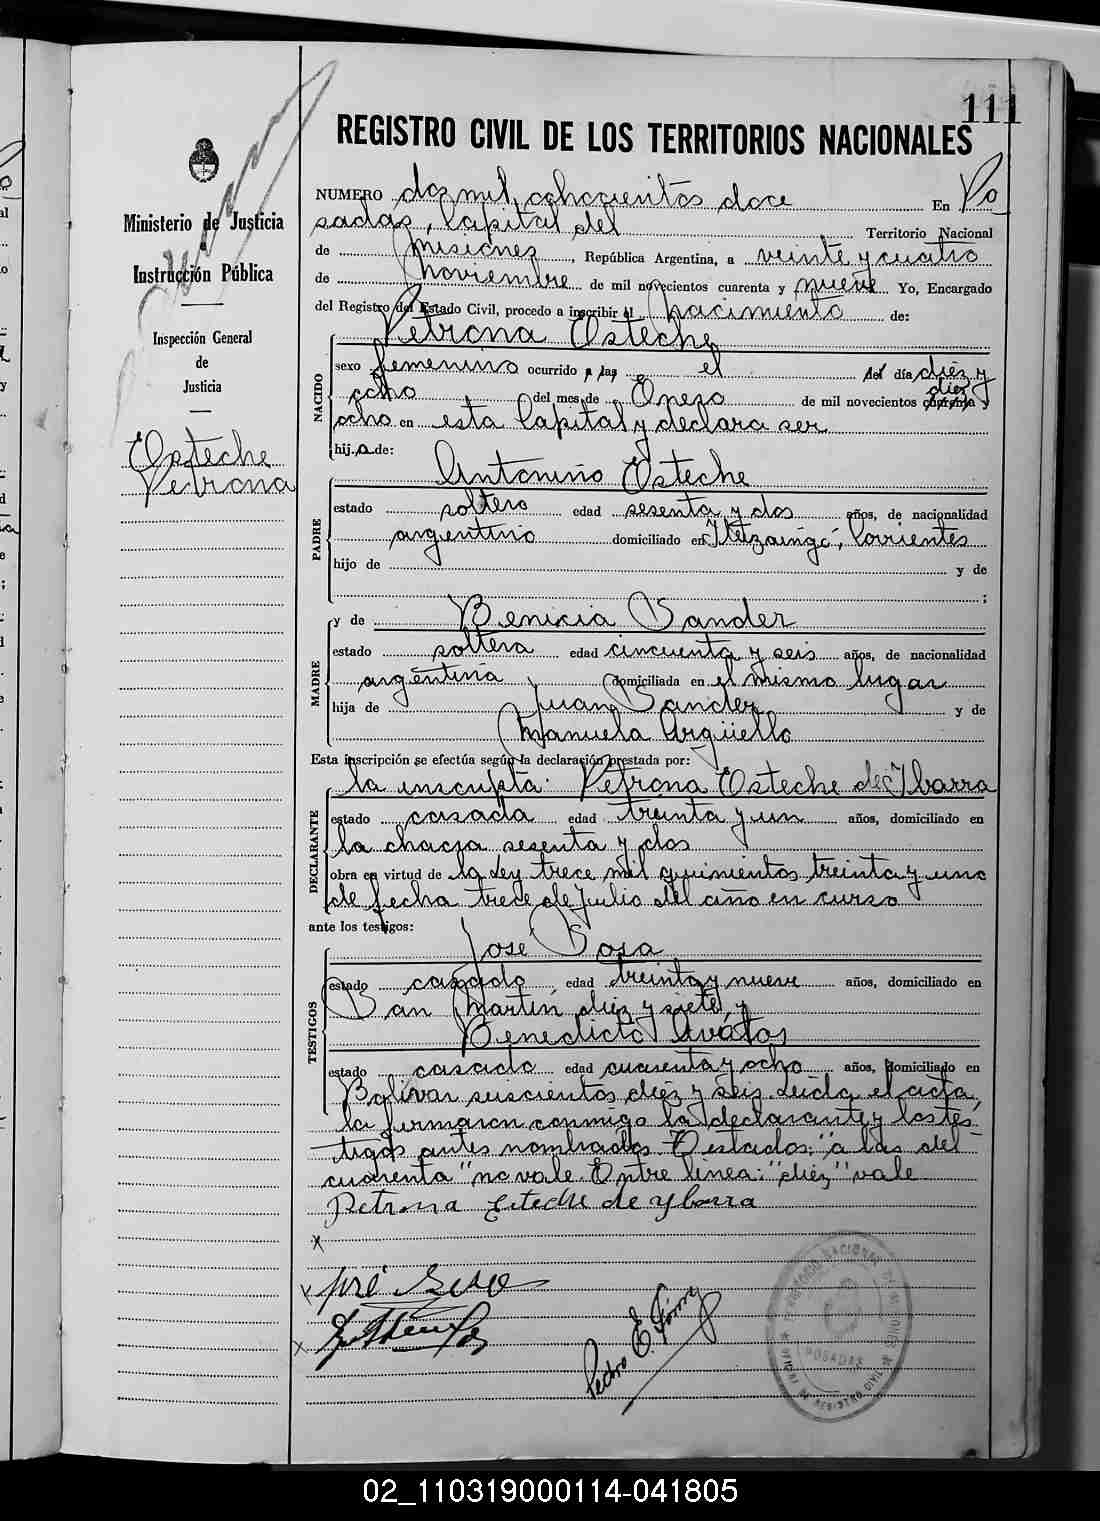 111
REGISTRO CIVIL DE LOS TERRITORIOS NACIONALES
Ministerio de Justicia
e
Instrucción Pública
Inspección General
de
Justicia
Esteche
Petrona
NUMERO dos mil ochocientos doce En Po
sadas, Capital del Territorio Nacional
de Misiones, República Argentina, a veinte y cuatro
de noviembre de mil novecientos cuarenta y nueve Yo, Encargado
del Registro del Estado Civil, procedo a inscribir el nacimiento de:
Petrona Esteche
NACIDO
sexo femenino ocurrido a las el del día diéz y
ocho del mes de Enero de mil novecientos cuarenta y diéz
ocho en esta Capital y declara ser
hij a de:
Antonino Esteche
PADRE
estado soltero edad sesenta y dos años, de nacionalidad
argentino domiciliado en Ituzaingó, Corrientes
hijo de y de
;
y de Benicia Sander
MADRE
estado soltera edad cincuenta y seis años, de nacionalidad
argentina domiciliada en el mismo lugar
hija de Juan Sander y de
Manuela Argüello
Esta inscripción se efectúa según la declaración prestada por:
la inscripta: Petrona Esteche de Ibarra
DECLARANTE
estado casada edad treinta y un años, domiciliado en
la chacra sesenta y dos
obra en virtud de la Ley trece mil quinientos treinta y uno
de fecha trece de julio del año en curso
ante los testigos:
José Sosa
TESTIGOS
estado casado edad treinta y nueve años, domiciliado en
San Martín diéz y siete, y
Benedicto Avalos
estado casado edad cuarenta y ocho años, domiciliado en
Bolivar seiscientos diéz y seis. Leída el acta,
la firmaron conmigo la declarante y los tes
tigos antes nombrados. Testados: "a las del
cuarenta" no vale. Entre linea: "diéz" vale
Petrona Esteche de Ybarra
x
x José Sosa
x
Pedro E.
POSADAS
02_110319000114-041805